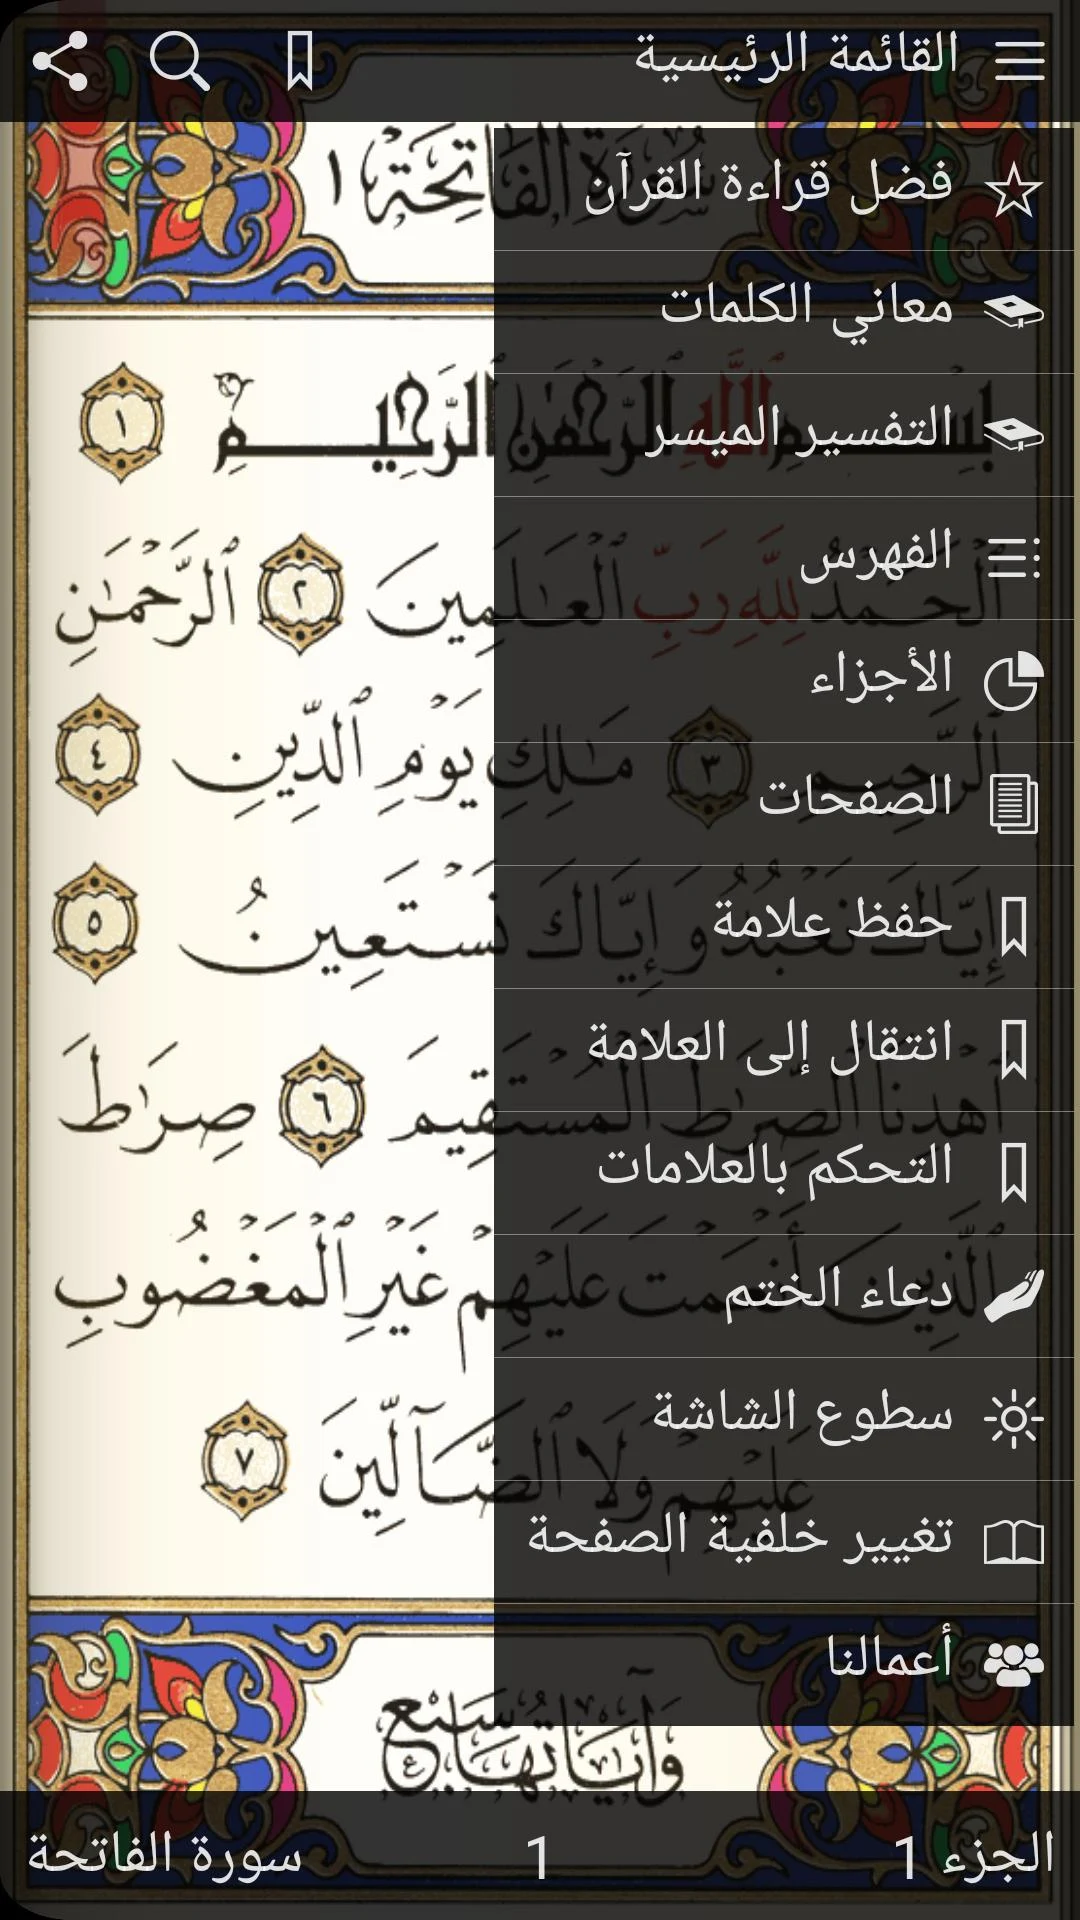 القائمة الرئيسية
فضل قراءة القرآن
معاني الكلمات
التفسير الميسر
الفهرس
الأجزاء
الصفحات
حفظ علامة
انتقال إلى العلامة
التحكم بالعلامات
دعاء الختم
سطوع الشاشة
تغيير خلفية الصفحة
أعمالنا
سُورَةُ الفَاتِحَةِ ١
بِسْمِ ٱللَّهِ ٱلرَّحْمَٰنِ ٱلرَّحِيمِ ١
ٱلْحَمْدُ لِلَّهِ رَبِّ ٱلْعَٰلَمِينَ ٢ ٱلرَّحْمَٰنِ
ٱلرَّحِيمِ ٣ مَٰلِكِ يَوْمِ ٱلدِّينِ ٤
إِيَّاكَ نَعْبُدُ وَإِيَّاكَ نَسْتَعِينُ ٥
ٱهْدِنَا ٱلصِّرَٰطَ ٱلْمُسْتَقِيمَ ٦ صِرَٰطَ
ٱلَّذِينَ أَنْعَمْتَ عَلَيْهِمْ غَيْرِ ٱلْمَغْضُوبِ
عَلَيْهِمْ وَلَا ٱلضَّآلِّينَ ٧
وَآيَاتُهَا سَبْعٌ
الجزء 1
1
سورة الفاتحة